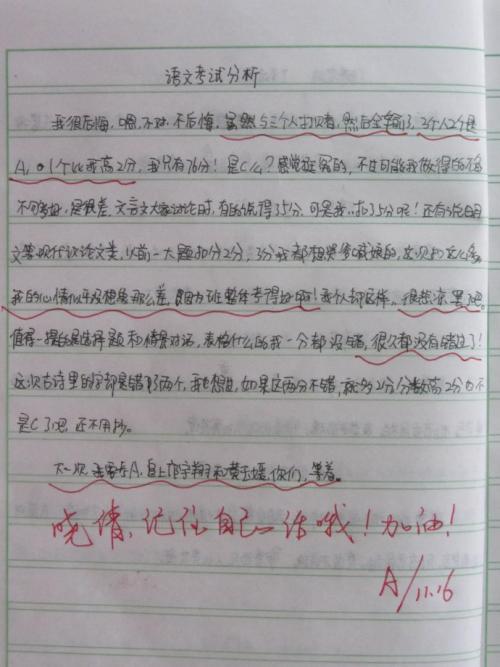 语文考试分析
我很后悔,嗯,不对,不后悔,虽然与三个人打赌,然后全输了,2个人2个是
A,1个比我高2分,我只有76分!是C么?感觉挺冤的,不过可能我做得的不够
不可多,是很差,文言文大家讨论时,有的说得35分,可是我扣了5分呢!还有说明
文等现代议论文类,以前一大题扣分2分,3分我都想哭爹喊娘的,这次扣这么多
我的心情似乎没想象那么差,因为班整体考得好啊!我认都这样,很想哭罢了吧。
值得一提的是选择题和情景对话,表格什么的我一分都没错,很久都没有错过了!
这次古诗里的字都是错了两个,我也想过,如果这两分不错,就多2分分数高2分也不
是C了吧,还不用抄。
下一次,我要夺A,追上邱宇翔和黄玉媛,你们,等着。
晓倩,记住自己的话哦!加油!
A/11.16